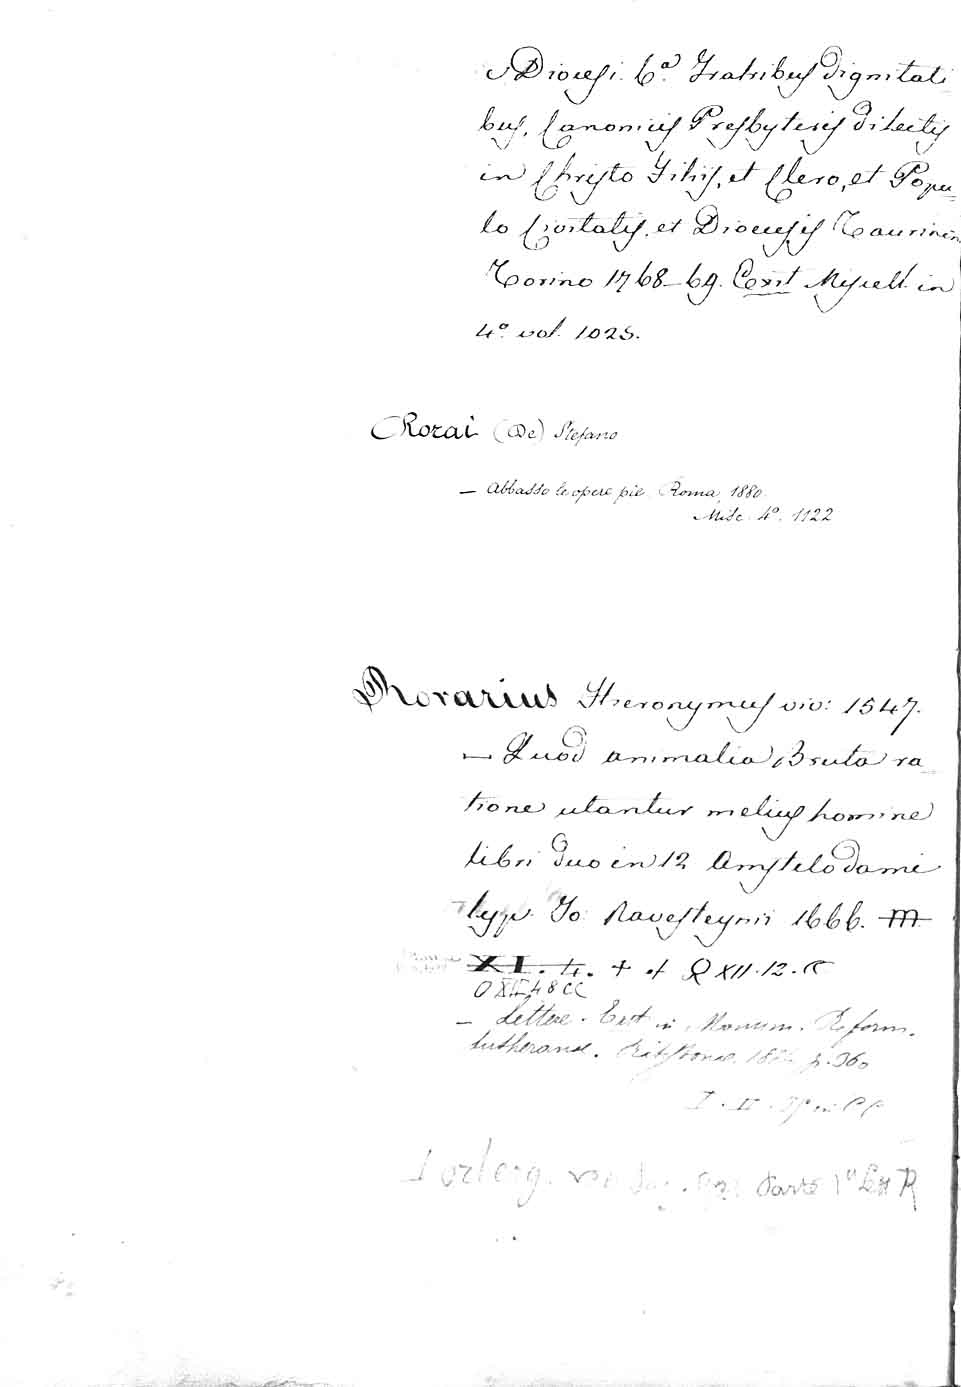 Diocesi. Ca. Fratribus Dignitati
bus, Canonicis Presbyteris Dilectis
in Christo Filiis, et Clero, et Popu-
lo Civitatis, et Diocesis Taurinen
Torino 1768-69. Exit Miscell. in
4º. vol. 1025.
Rorai (De) Stefano
— Abbasso le opere pie. Roma, 1880.
Misc. 4º. 1122
Rorarius Hieronymus viv: 1547.
— Quod animalia Bruta ra-
tione utantur melius homine
libri duo in 12 Amstelodami
typ. Jo: Ravesteynii 1666. M
XI. 4. + Q XII. 12.
O XII 48 CC
— Lettere. Exst in Monum. Reform.
Lutheranae. Ratisbonae. p. 360
I. II.